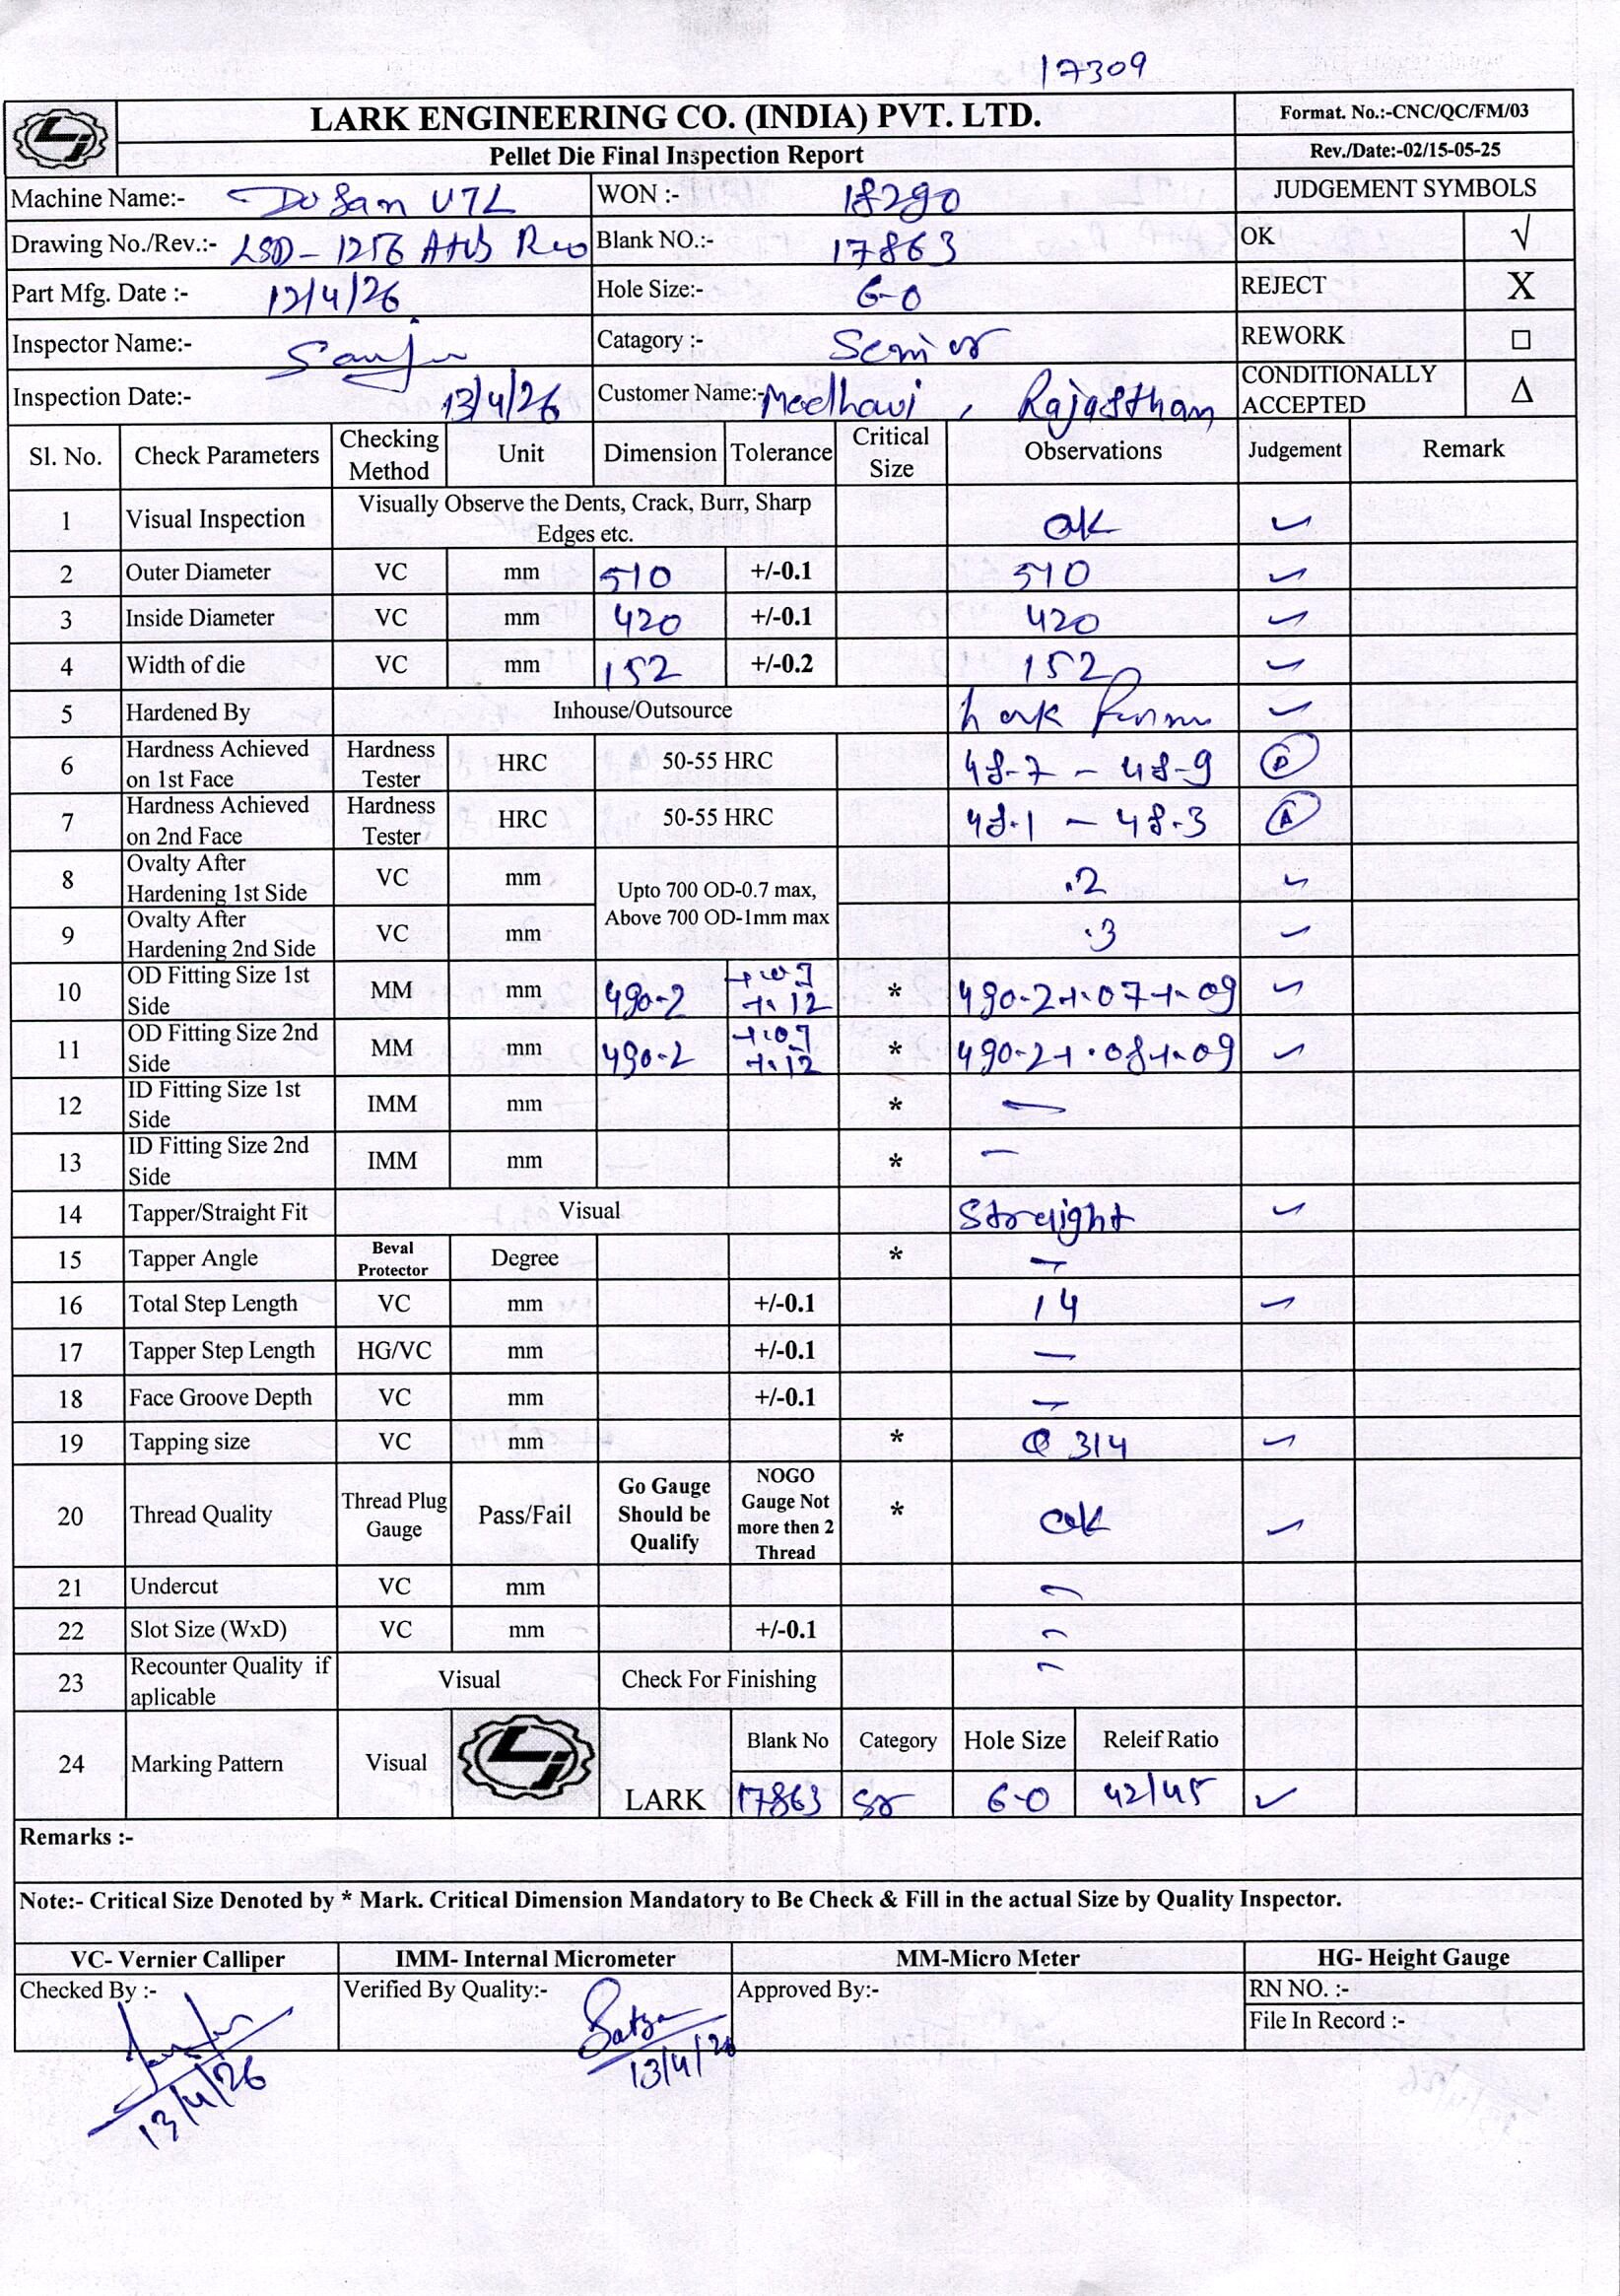 17309
LARK ENGINEERING CO. (INDIA) PVT. LTD.
Format. No.:-CNC/QC/FM/03
Pellet Die Final Inspection Report
Rev./Date:-02/15-05-25
Machine Name:- DoSan V7L WON :- 18290 JUDGEMENT SYMBOLS
Drawing No./Rev.:- LSD-1256 Blank NO.:- 17863 OK √
Part Mfg. Date :- 12/4/26 Hole Size:- 6-0 REJECT X
Inspector Name:- Sanju Catagory :- Senior REWORK □
Inspection Date:- 13/4/26 Customer Name:- Medhavi, Rajasthan CONDITIONALLY ACCEPTED Δ
Sl. No. Check Parameters Checking Method Unit Dimension Tolerance Critical Size Observations Judgement Remark
1 Visual Inspection Visually Observe the Dents, Crack, Burr, Sharp Edges etc. ok ✓
2 Outer Diameter VC mm 510 +/-0.1 510 ✓
3 Inside Diameter VC mm 420 +/-0.1 420 ✓
4 Width of die VC mm 152 +/-0.2 152 ✓
5 Hardened By Inhouse/Outsource Lark ✓
6 Hardness Achieved on 1st Face Hardness Tester HRC 50-55 HRC 48.7 - 48.9
7 Hardness Achieved on 2nd Face Hardness Tester HRC 50-55 HRC 48.1 - 48.3 A
8 Ovalty After Hardening 1st Side VC mm Upto 700 OD-0.7 max, Above 700 OD-1mm max .2 ✓
9 Ovalty After Hardening 2nd Side VC mm .3 ✓
10 OD Fitting Size 1st Side MM mm 490.2 +.12 * 490.2+.07+.09 ✓
11 OD Fitting Size 2nd Side MM mm 490.2 +.12 * 490.2+.08+.09 ✓
12 ID Fitting Size 1st Side IMM mm * —
13 ID Fitting Size 2nd Side IMM mm * —
14 Tapper/Straight Fit Visual Straight ✓
15 Tapper Angle Beval Protector Degree * —
16 Total Step Length VC mm +/-0.1 14 ✓
17 Tapper Step Length HG/VC mm +/-0.1 —
18 Face Groove Depth VC mm +/-0.1 —
19 Tapping size VC mm * 314 ✓
20 Thread Quality Thread Plug Gauge Pass/Fail Go Gauge Should be Qualify NOGO Gauge Not more then 2 Thread * ok ✓
21 Undercut VC mm —
22 Slot Size (WxD) VC mm +/-0.1 —
23 Recounter Quality if aplicable Visual Check For Finishing —
24 Marking Pattern Visual LARK Blank No Category Hole Size Releif Ratio
17863 Sr 6-0 42/45 ✓
Remarks :-
Note:- Critical Size Denoted by * Mark. Critical Dimension Mandatory to Be Check & Fill in the actual Size by Quality Inspector.
VC- Vernier Calliper IMM- Internal Micrometer MM-Micro Meter HG- Height Gauge
Checked By :- Verified By Quality:- Approved By:- RN NO. :-
File In Record :-
13/4/26 13/4/26